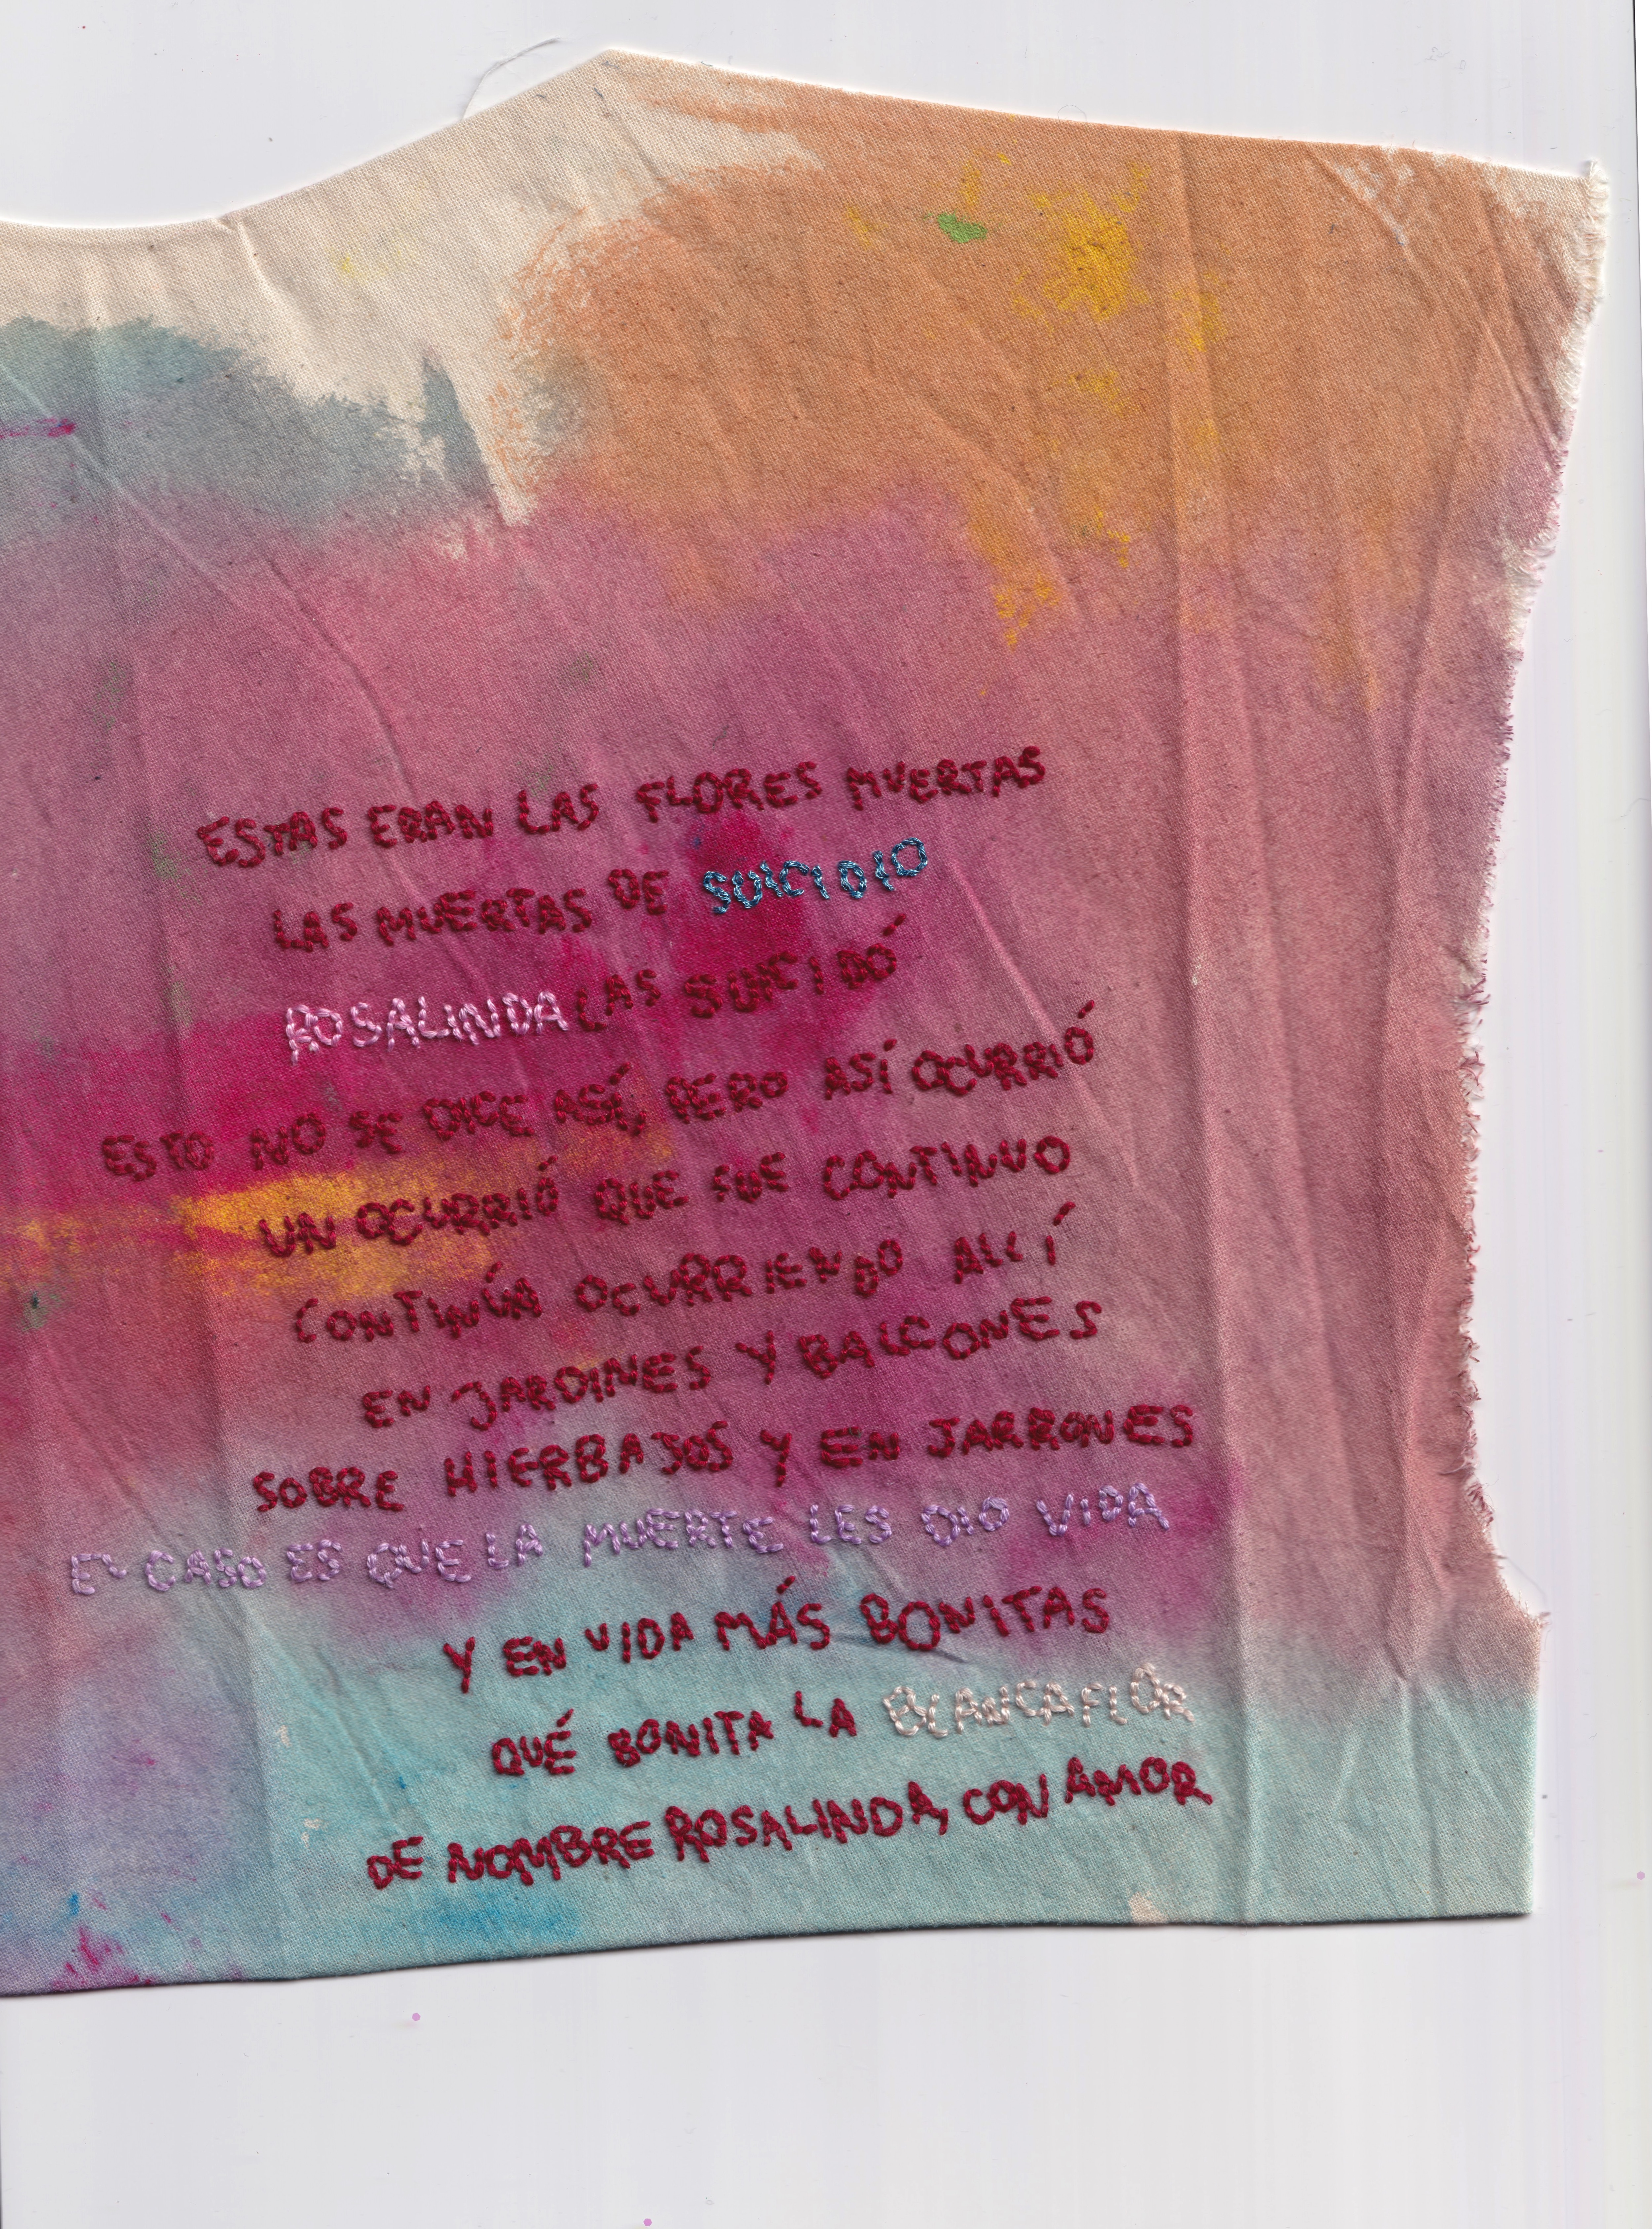 ESTAS ERAN LAS FLORES MUERTAS
LAS MUERTAS DE SUICIDIO
ROSALINDA LAS SUICIDÓ
ESTO NO SE DICE ASÍ, PERO ASÍ OCURRIÓ
UN OCURRIÓ QUE FUE CONTINUO
CONTINÚA OCURRIENDO ALLÍ
EN JARDINES Y BALCONES
SOBRE HIERBAJOS Y EN JARRONES
EL CASO ES QUE LA MUERTE LES DIO VIDA
Y EN VIDA MÁS BONITAS
QUÉ BONITA LA BLANCAFLOR
DE NOMBRE ROSALINDA, CON AMOR